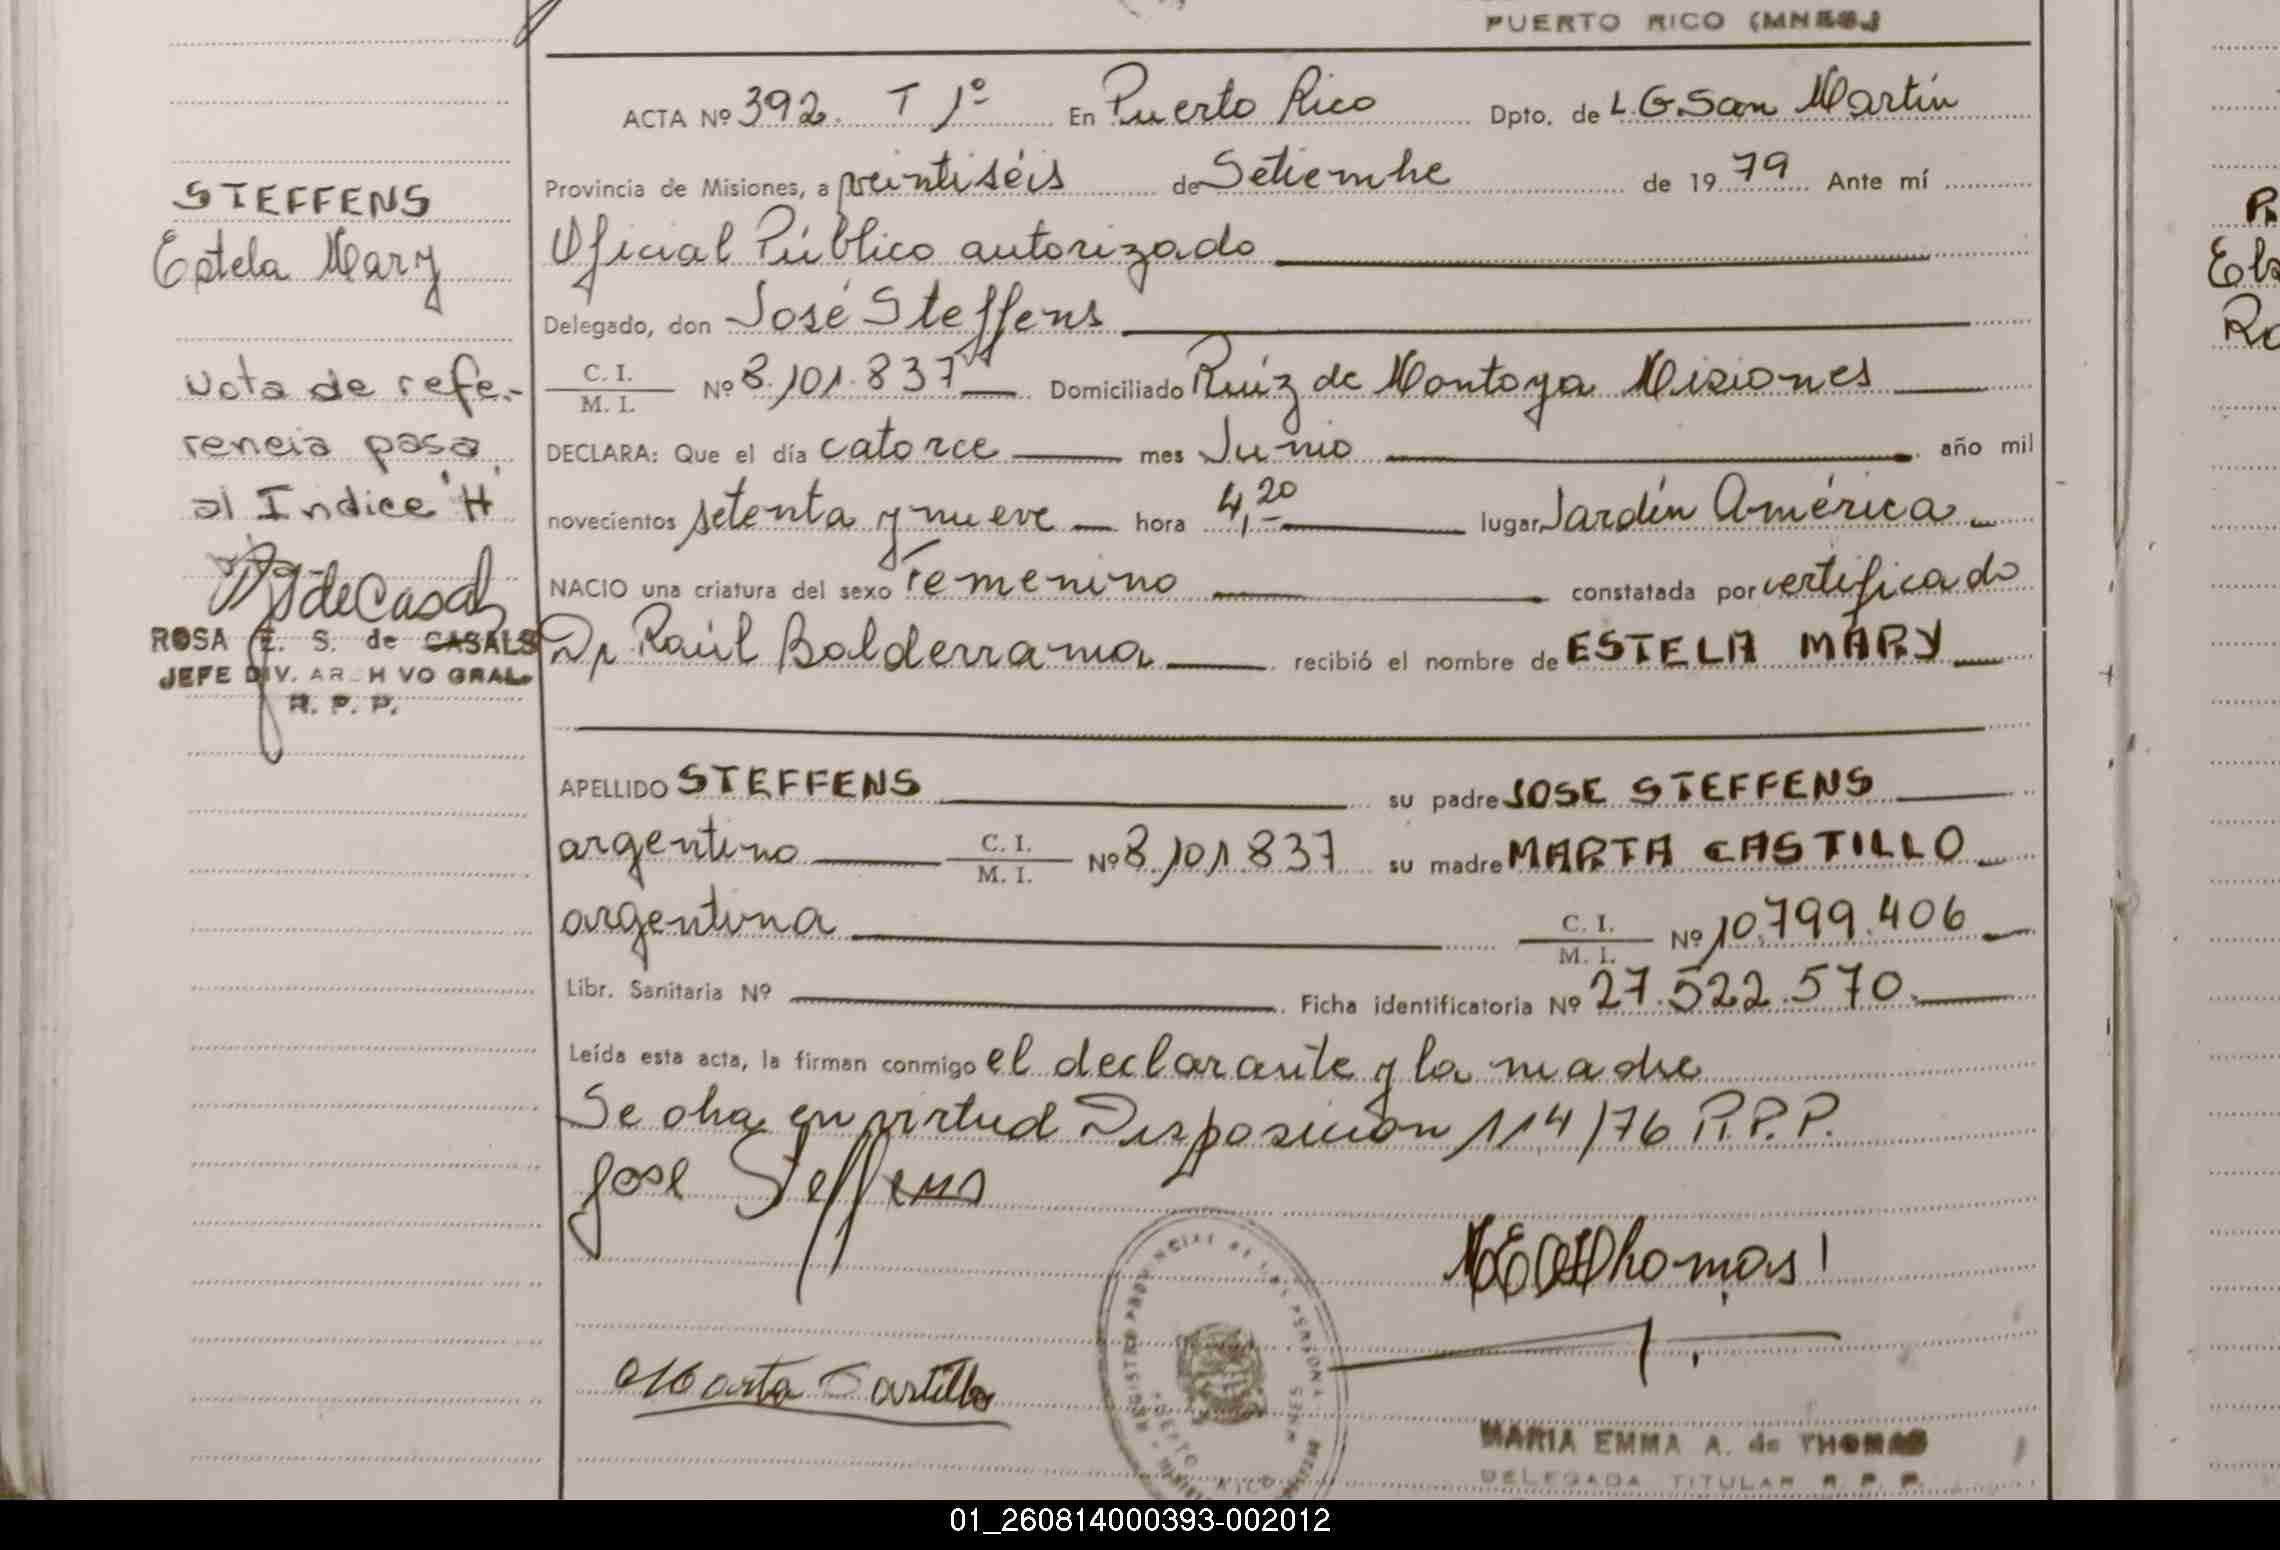 PUERTO RICO (MNES.)
ACTA Nº 392. T 1º En Puerto Rico Dpto. de L.G San Martín
Provincia de Misiones, a veintiséis de Setiembre de 1979 Ante mí
Oficial Público autorizado
Delegado, don José Steffens
C. I.
M. I. Nº 8.101.837 Domiciliado Ruíz de Montoya Misiones
DECLARA: Que el día catorce mes Junio año mil
novecientos setenta y nueve hora 4,20 lugar Jardín América
NACIO una criatura del sexo Femenino constatada por certificado
Dr Raúl Balderrama recibió el nombre de ESTELA MARY
APELLIDO STEFFENS su padre JOSE STEFFENS
argentino C. I.
M. I. Nº 8.101.837 su madre MARTA CASTILLO
argentina C. I.
M. I. Nº 10.799.406
Libr. Sanitaria Nº Ficha identificatoria Nº 27.522.570
Leída esta acta, la firman conmigo el declarante y la madre
Se oha en virtud Disposición 114/76 R.P.P.
Jose Steffens
Marta Castillo
MARIA EMMA A. de THOMAS
DELEGADA TITULAR R. P. P.
STEFFENS
Estela Mary
Nota de refe-
rencia pasa
al Indice "H"
ROSA E. S. de CASALS
JEFE DIV. ARCHIVO GRAL.
R. P. P.
01_260814000393-002012